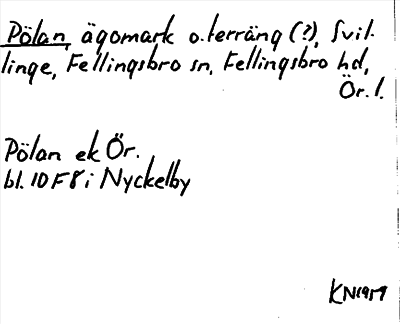 Pölan, ägomark o. terräng (?), Svil-
linge, Fellingsbro sn, Fellingsbro hd,
Ör. l.
Pölan ek Ör.
bl. 10 F 8 i Nyckelby